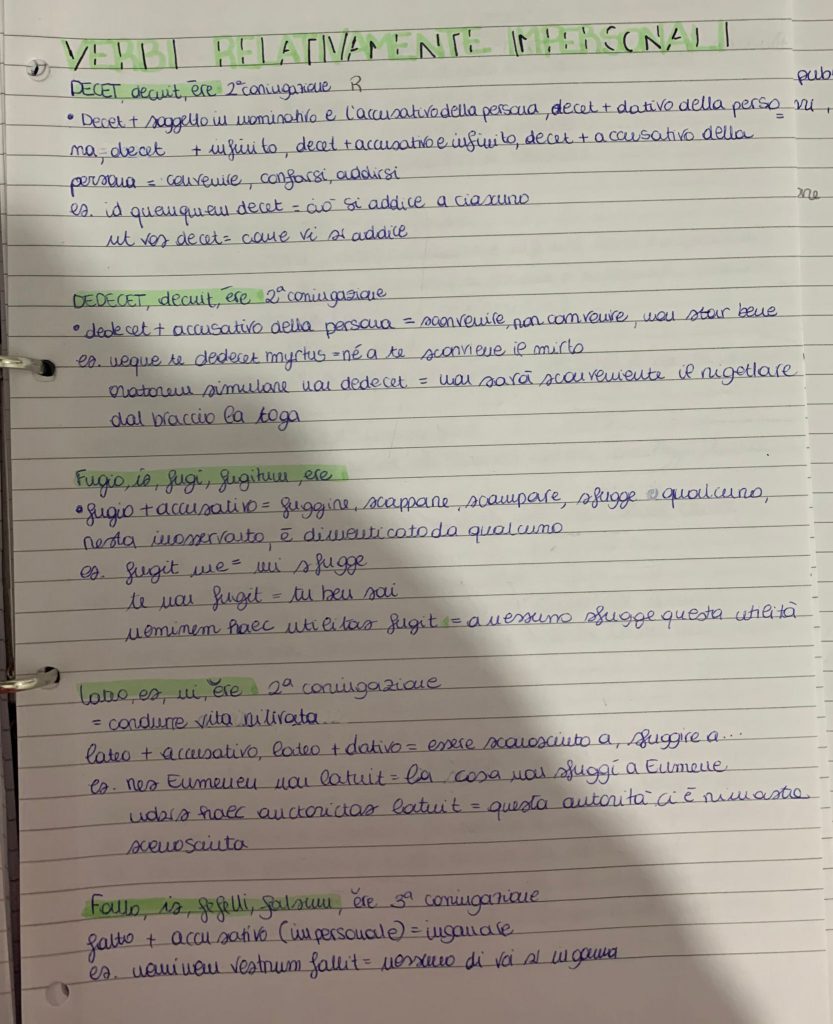 VERBI RELATIVAMENTE IMPERSONALI
DECET, decuit, ēre 2ª coniugazione R
• Decet + soggetto in nominativo e l'accusativo della persona, decet + dativo della perso=
na, decet + infinito, decet + accusativo e infinito, decet + accusativo della
persona = convenire, confarsi, addirsi
es. id quemquem decet = ciò si addice a ciascuno
ut vos decet = come vi si addice
DEDECET, decuit, ēre 2ª coniugazione
• dedecet + accusativo della persona = sconvenire, non convenire, non star bene
es. neque te dedecet myrtus = né a te sconviene il mirto
oratorem simulare non dedecet = non sarà sconveniente il rigettare
dal braccio la toga
Fugio, is, fugi, fugitum, ere
• fugio + accusativo = fuggire, scappare, scampare, sfugge a qualcuno,
resta inosservato, è dimenticato da qualcuno
es. fugit me = mi sfugge
te non fugit = tu ben sai
neminem haec utilitas fugit = a nessuno sfugge questa utilità
Lateo, es, ui, ēre 2ª coniugazione
= condurre vita ritirata
lateo + accusativo, lateo + dativo = essere sconosciuto a, sfuggire a...
es. res Eumenen non latuit = la cosa non sfuggì a Eumene
nobis haec auctoritas latuit = questa autorità ci è rimasta
sconosciuta
Fallo, is, fefelli, falsum, ĕre 3ª coniugazione
fallo + accusativo (impersonale) = ingannare
es. neminem vestrum fallit = nessuno di voi si inganna
pub
vi,